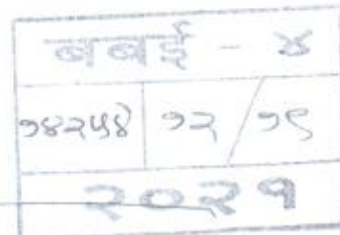 बबई - ४
१४२५४ १२/१९
२०२१